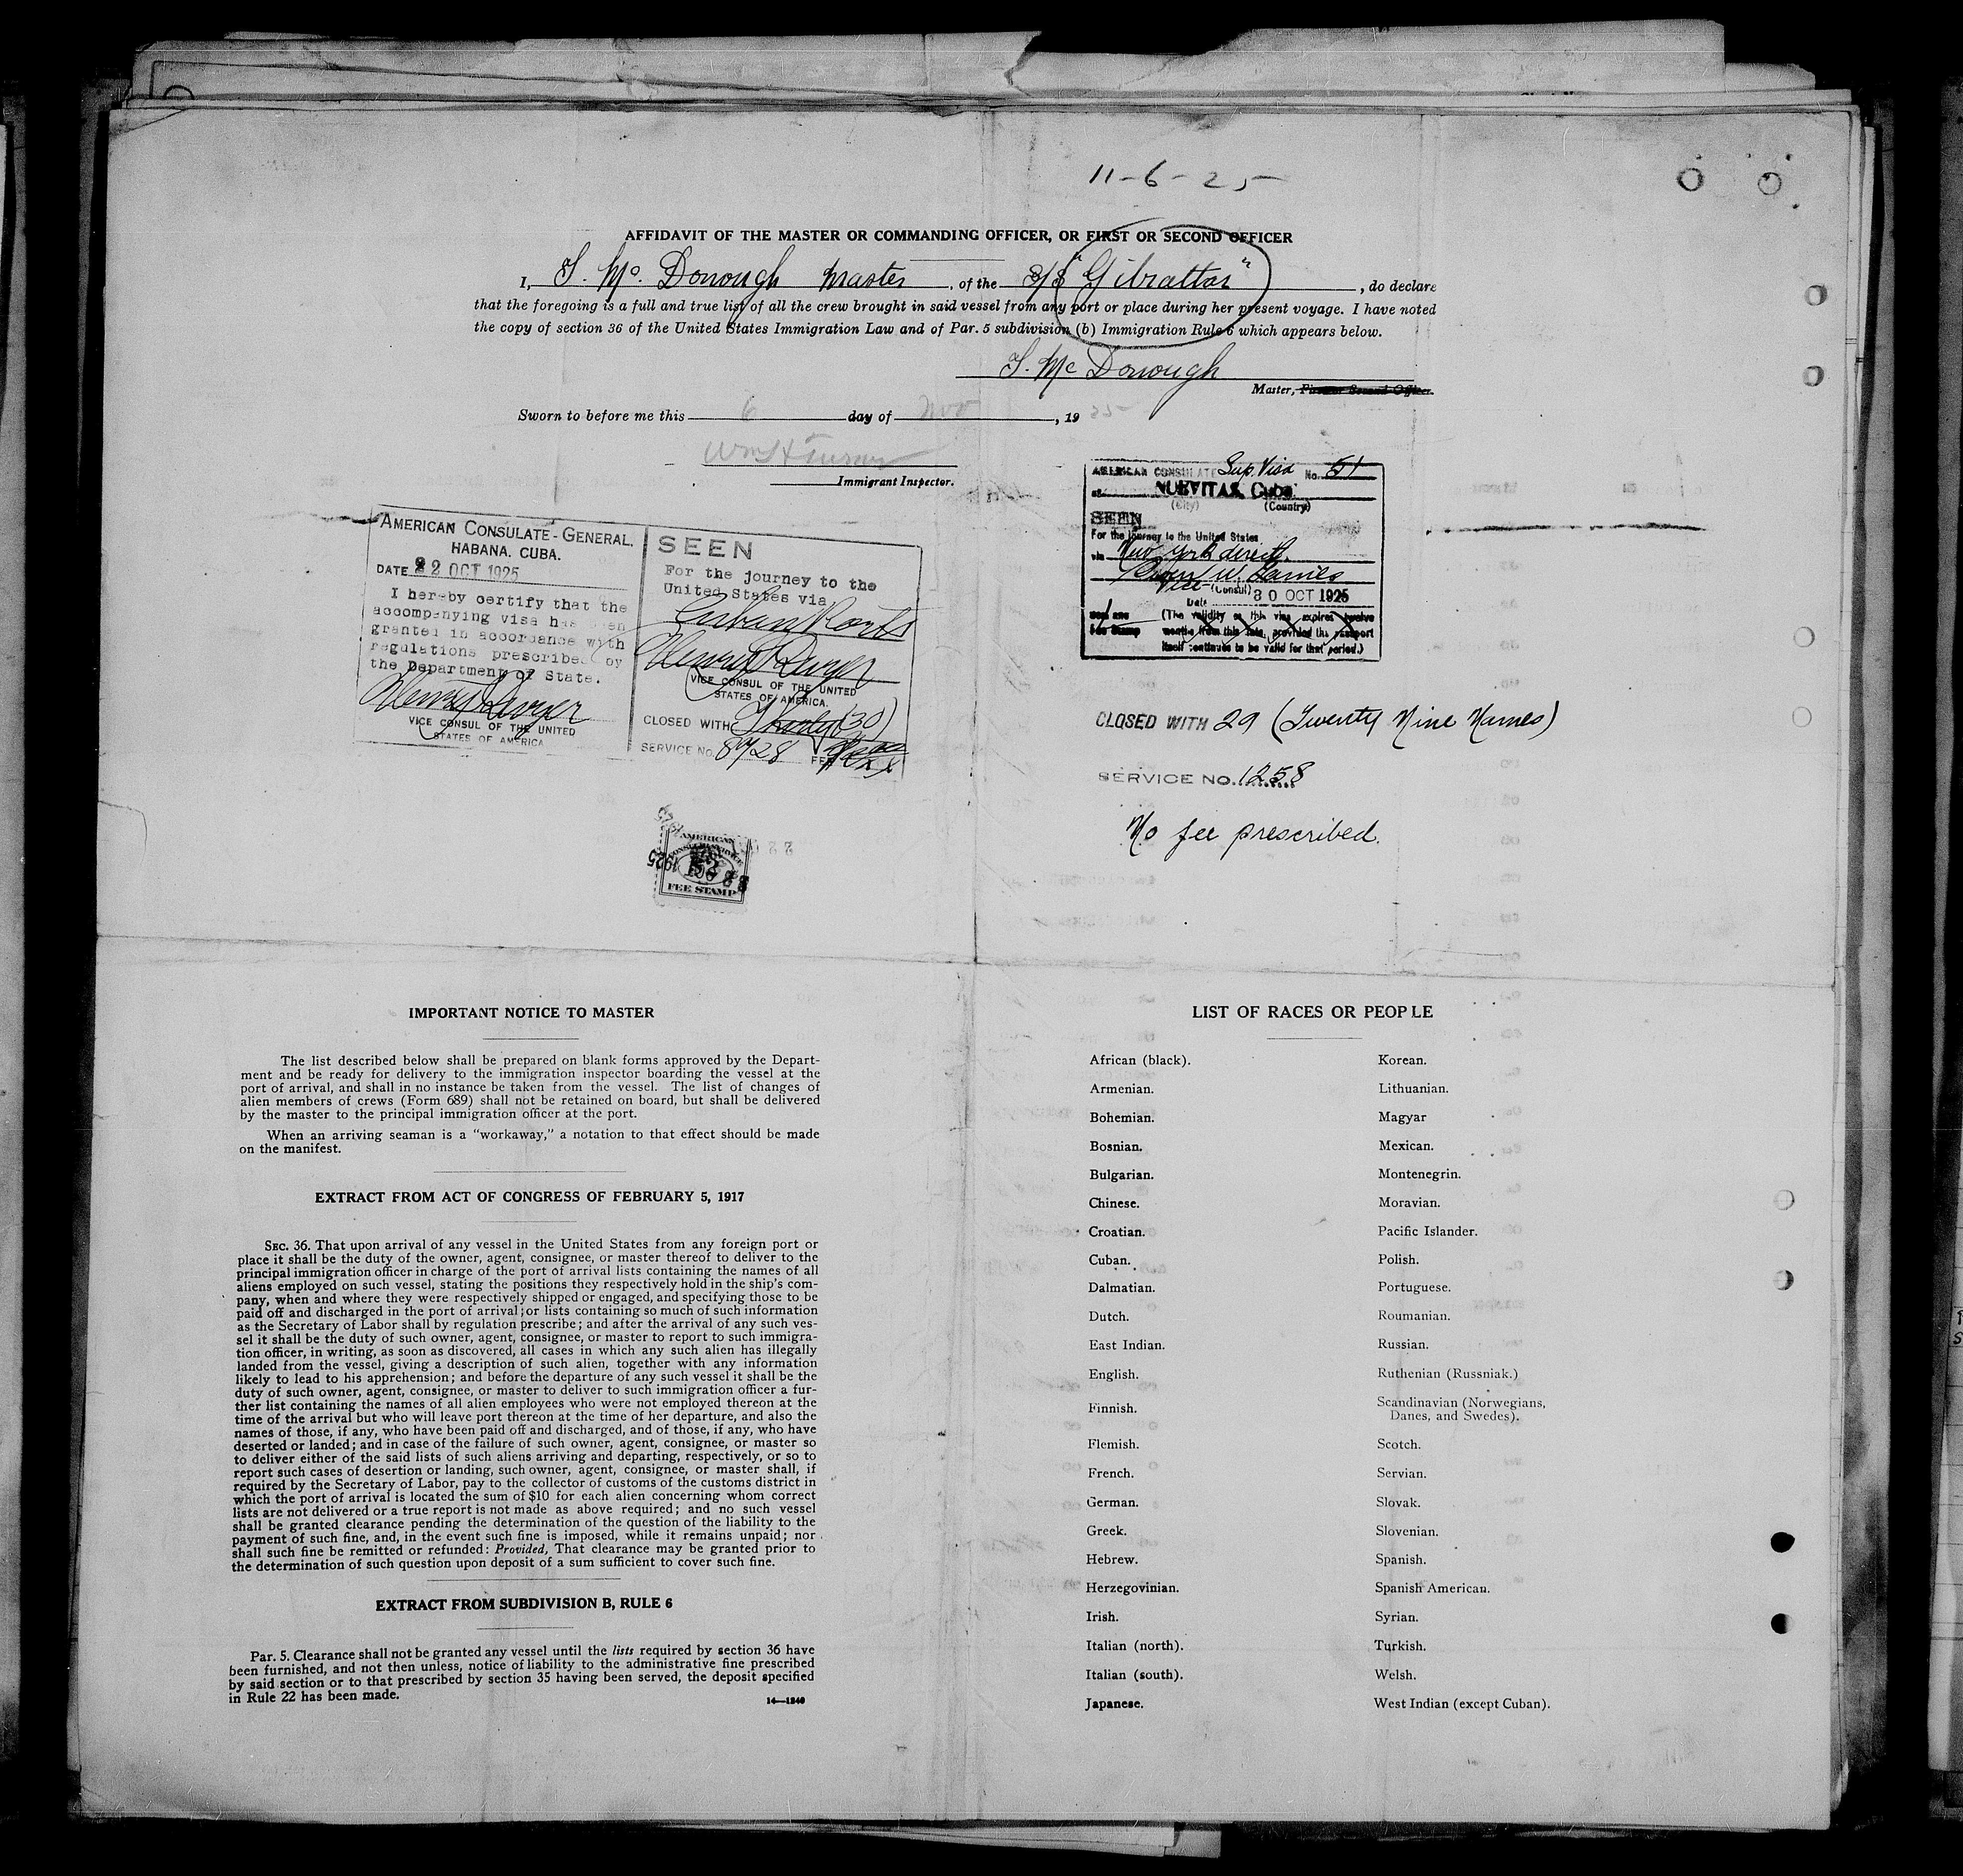 11-6-25
AFFIDAVIT OF THE MASTER OR COMMANDING OFFICER, OR FIRST OR SECOND OFFICER
I, S. Mc. Donough Master, of the S/S "Gibraltar", do declare
that the foregoing is a full and true list of all the crew brought in said vessel from any port or place during her present voyage. I have noted
the copy of section 36 of the United States Immigration Law and of Par. 5 subdivision (b) Immigration Rule 6 which appears below.
S. Mc Donough
Master, First or Second Officer.
Sworn to before me this 6 day of Nov, 1925
Immigrant Inspector.
AMERICAN CONSULATE-GENERAL.
HABANA. CUBA.
DATE 22 OCT 1925
I hereby certify that the
accompanying visa has been
granted in accordance with
regulations prescribed by
the Department of State.
VICE CONSUL OF THE UNITED
STATES OF AMERICA
SEEN
For the journey to the
United States via
Cuban Ports
VICE CONSUL OF THE UNITED
STATES OF AMERICA.
CLOSED WITH Thirty (30)
SERVICE No. 8728 FEE
AMERICAN CONSULATE Sup. Visa No. 51
at NUEVITAS, Cuba
(City) (Country)
SEEN
For the journey to the United States
via New York direct.
Vice (Consul)
Date 30 OCT 1925
(The validity of this visa expires twelve
Fee Stamp months from this date, provided the passport
itself continues to be valid for that period.)
CLOSED WITH 29 (Twenty Nine Names)
SERVICE NO. 1258
No fee prescribed.
AMERICAN
FEE STAMP
1925
IMPORTANT NOTICE TO MASTER
The list described below shall be prepared on blank forms approved by the Depart-
ment and be ready for delivery to the immigration inspector boarding the vessel at the
port of arrival, and shall in no instance be taken from the vessel. The list of changes of
alien members of crews (Form 689) shall not be retained on board, but shall be delivered
by the master to the principal immigration officer at the port.
When an arriving seaman is a "workaway," a notation to that effect should be made
on the manifest.
EXTRACT FROM ACT OF CONGRESS OF FEBRUARY 5, 1917
SEC. 36. That upon arrival of any vessel in the United States from any foreign port or
place it shall be the duty of the owner, agent, consignee, or master thereof to deliver to the
principal immigration officer in charge of the port of arrival lists containing the names of all
aliens employed on such vessel, stating the positions they respectively hold in the ship's com-
pany, when and where they were respectively shipped or engaged, and specifying those to be
paid off and discharged in the port of arrival; or lists containing so much of such information
as the Secretary of Labor shall by regulation prescribe; and after the arrival of any such ves-
sel it shall be the duty of such owner, agent, consignee, or master to report to such immigra-
tion officer, in writing, as soon as discovered, all cases in which any such alien has illegally
landed from the vessel, giving a description of such alien, together with any information
likely to lead to his apprehension; and before the departure of any such vessel it shall be the
duty of such owner, agent, consignee, or master to deliver to such immigration officer a fur-
ther list containing the names of all alien employees who were not employed thereon at the
time of the arrival but who will leave port thereon at the time of her departure, and also the
names of those, if any, who have been paid off and discharged, and of those, if any, who have
deserted or landed; and in case of the failure of such owner, agent, consignee, or master so
to deliver either of the said lists of such aliens arriving and departing, respectively, or so to
report such cases of desertion or landing, such owner, agent, consignee, or master shall, if
required by the Secretary of Labor, pay to the collector of customs of the customs district in
which the port of arrival is located the sum of $10 for each alien concerning whom correct
lists are not delivered or a true report is not made as above required; and no such vessel
shall be granted clearance pending the determination of the question of the liability to the
payment of such fine, and, in the event such fine is imposed, while it remains unpaid; nor
shall such fine be remitted or refunded: Provided, That clearance may be granted prior to
the determination of such question upon deposit of a sum sufficient to cover such fine.
EXTRACT FROM SUBDIVISION B, RULE 6
Par. 5. Clearance shall not be granted any vessel until the lists required by section 36 have
been furnished, and not then unless, notice of liability to the administrative fine prescribed
by said section or to that prescribed by section 35 having been served, the deposit specified
in Rule 22 has been made.
14—1240
LIST OF RACES OR PEOPLE
African (black).
Armenian.
Bohemian.
Bosnian.
Bulgarian.
Chinese.
Croatian.
Cuban.
Dalmatian.
Dutch.
East Indian.
English.
Finnish.
Flemish.
French.
German.
Greek.
Hebrew.
Herzegovinian.
Irish.
Italian (north).
Italian (south).
Japanese.
Korean.
Lithuanian.
Magyar
Mexican.
Montenegrin.
Moravian.
Pacific Islander.
Polish.
Portuguese.
Roumanian.
Russian.
Ruthenian (Russniak.)
Scandinavian (Norwegians,
Danes, and Swedes).
Scotch.
Servian.
Slovak.
Slovenian.
Spanish.
Spanish American.
Syrian.
Turkish.
Welsh.
West Indian (except Cuban).